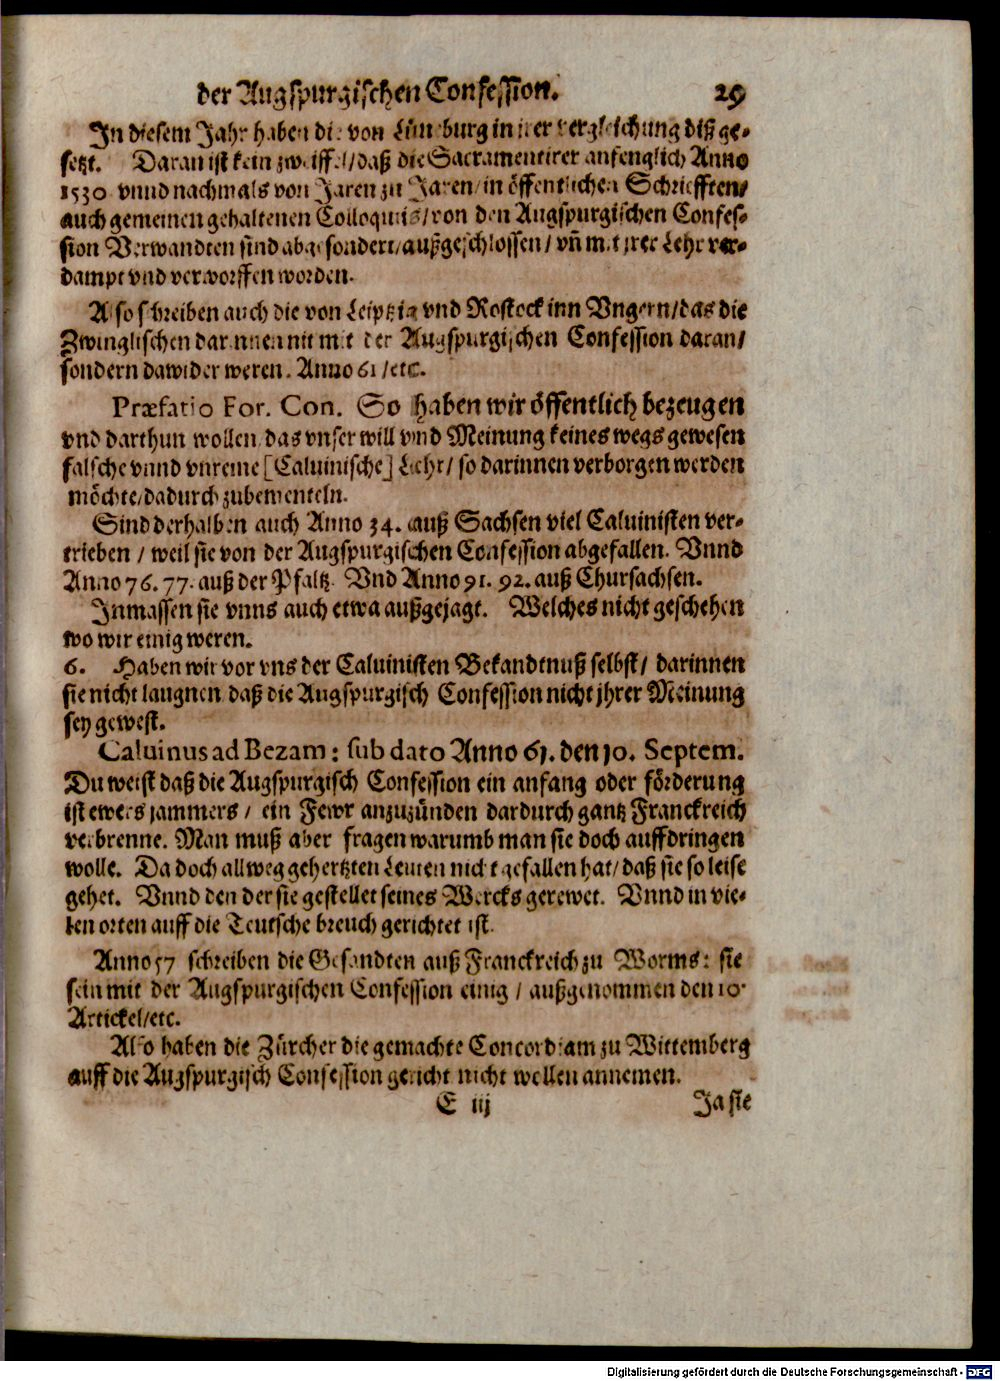 der Augspurgischen Confession. 29
In diesem Jahr haben die von Lüneburg in jrer vergleichung diß ge-
setzt. Daran ist kein zweiffel/ daß die Sacramentirer anfenglich Anno
1530 vnnd nachmals von Jaren zu Jaren/ in öffentlichen Schriefften/
auch gemeinen gehaltenen Colloquiis/ von den Augspurgischen Confes-
sion Verwandten sind abgesondert/ außgeschlossen/ vñ mit jrer Lehr ver-
dampt vnd verworffen worden.
Also schreiben auch die von Leiptzig vnd Rostock inn Vngern/ das die
Zwinglischen darinnen nit mit der Augspurgischen Confession daran/
sondern dawider weren. Anno 61/ etc.
Præfatio For. Con. So haben wir öffentlich bezeugen
vnd darthun wollen das vnser will vnd Meinung keines wegs gewesen
falsche vnnd vnreine [Caluinische] Lehr/ so darinnen verborgen werden
möchte/ dadurch zubementeln.
Sind derhalben auch Anno 34. auß Sachsen viel Caluinisten ver-
trieben / weil sie von der Augspurgischen Confession abgefallen. Vnnd
Anno 76. 77. auß der Pfaltz. Vnd Anno 91. 92. auß Chursachsen.
Inmassen sie vnns auch etwa außgejagt. Welches nicht geschehen
wo wir einig weren.
6. Haben wir vor vns der Caluinisten Bekandtnuß selbst/ darinnen
sie nicht laugnen daß die Augspurgisch Confession nicht jhrer Meinung
sey gewest.
Caluinus ad Bezam: sub dato Anno 61. den 10. Septem.
Du weist daß die Augspurgisch Confession ein anfang oder förderung
ist ewers jammers / ein Fewr anzuzünden dardurch gantz Franckreich
verbrenne. Man muß aber fragen warumb man sie doch auffdringen
wolle. Da doch allweg gehertzten Leuten nicht gefallen hat/ daß sie so leise
gehet. Vnnd den der sie gestellet seines Wercks gerewet. Vnnd in vie-
len orten auff die Teutsche breuch gerichtet ist.
Anno 57 schreiben die Gesandten auß Franckreich zu Worms: sie
sein mit der Augspurgischen Confession einig / außgenommen den 10.
Artickel/ etc.
Also haben die Zürcher die gemachte Concordiam zu Wittemberg
auff die Augspurgisch Confession gericht nicht wollen annemen.
E iij Ja sie
Digitalisierung gefördert durch die Deutsche Forschungsgemeinschaft - DFG